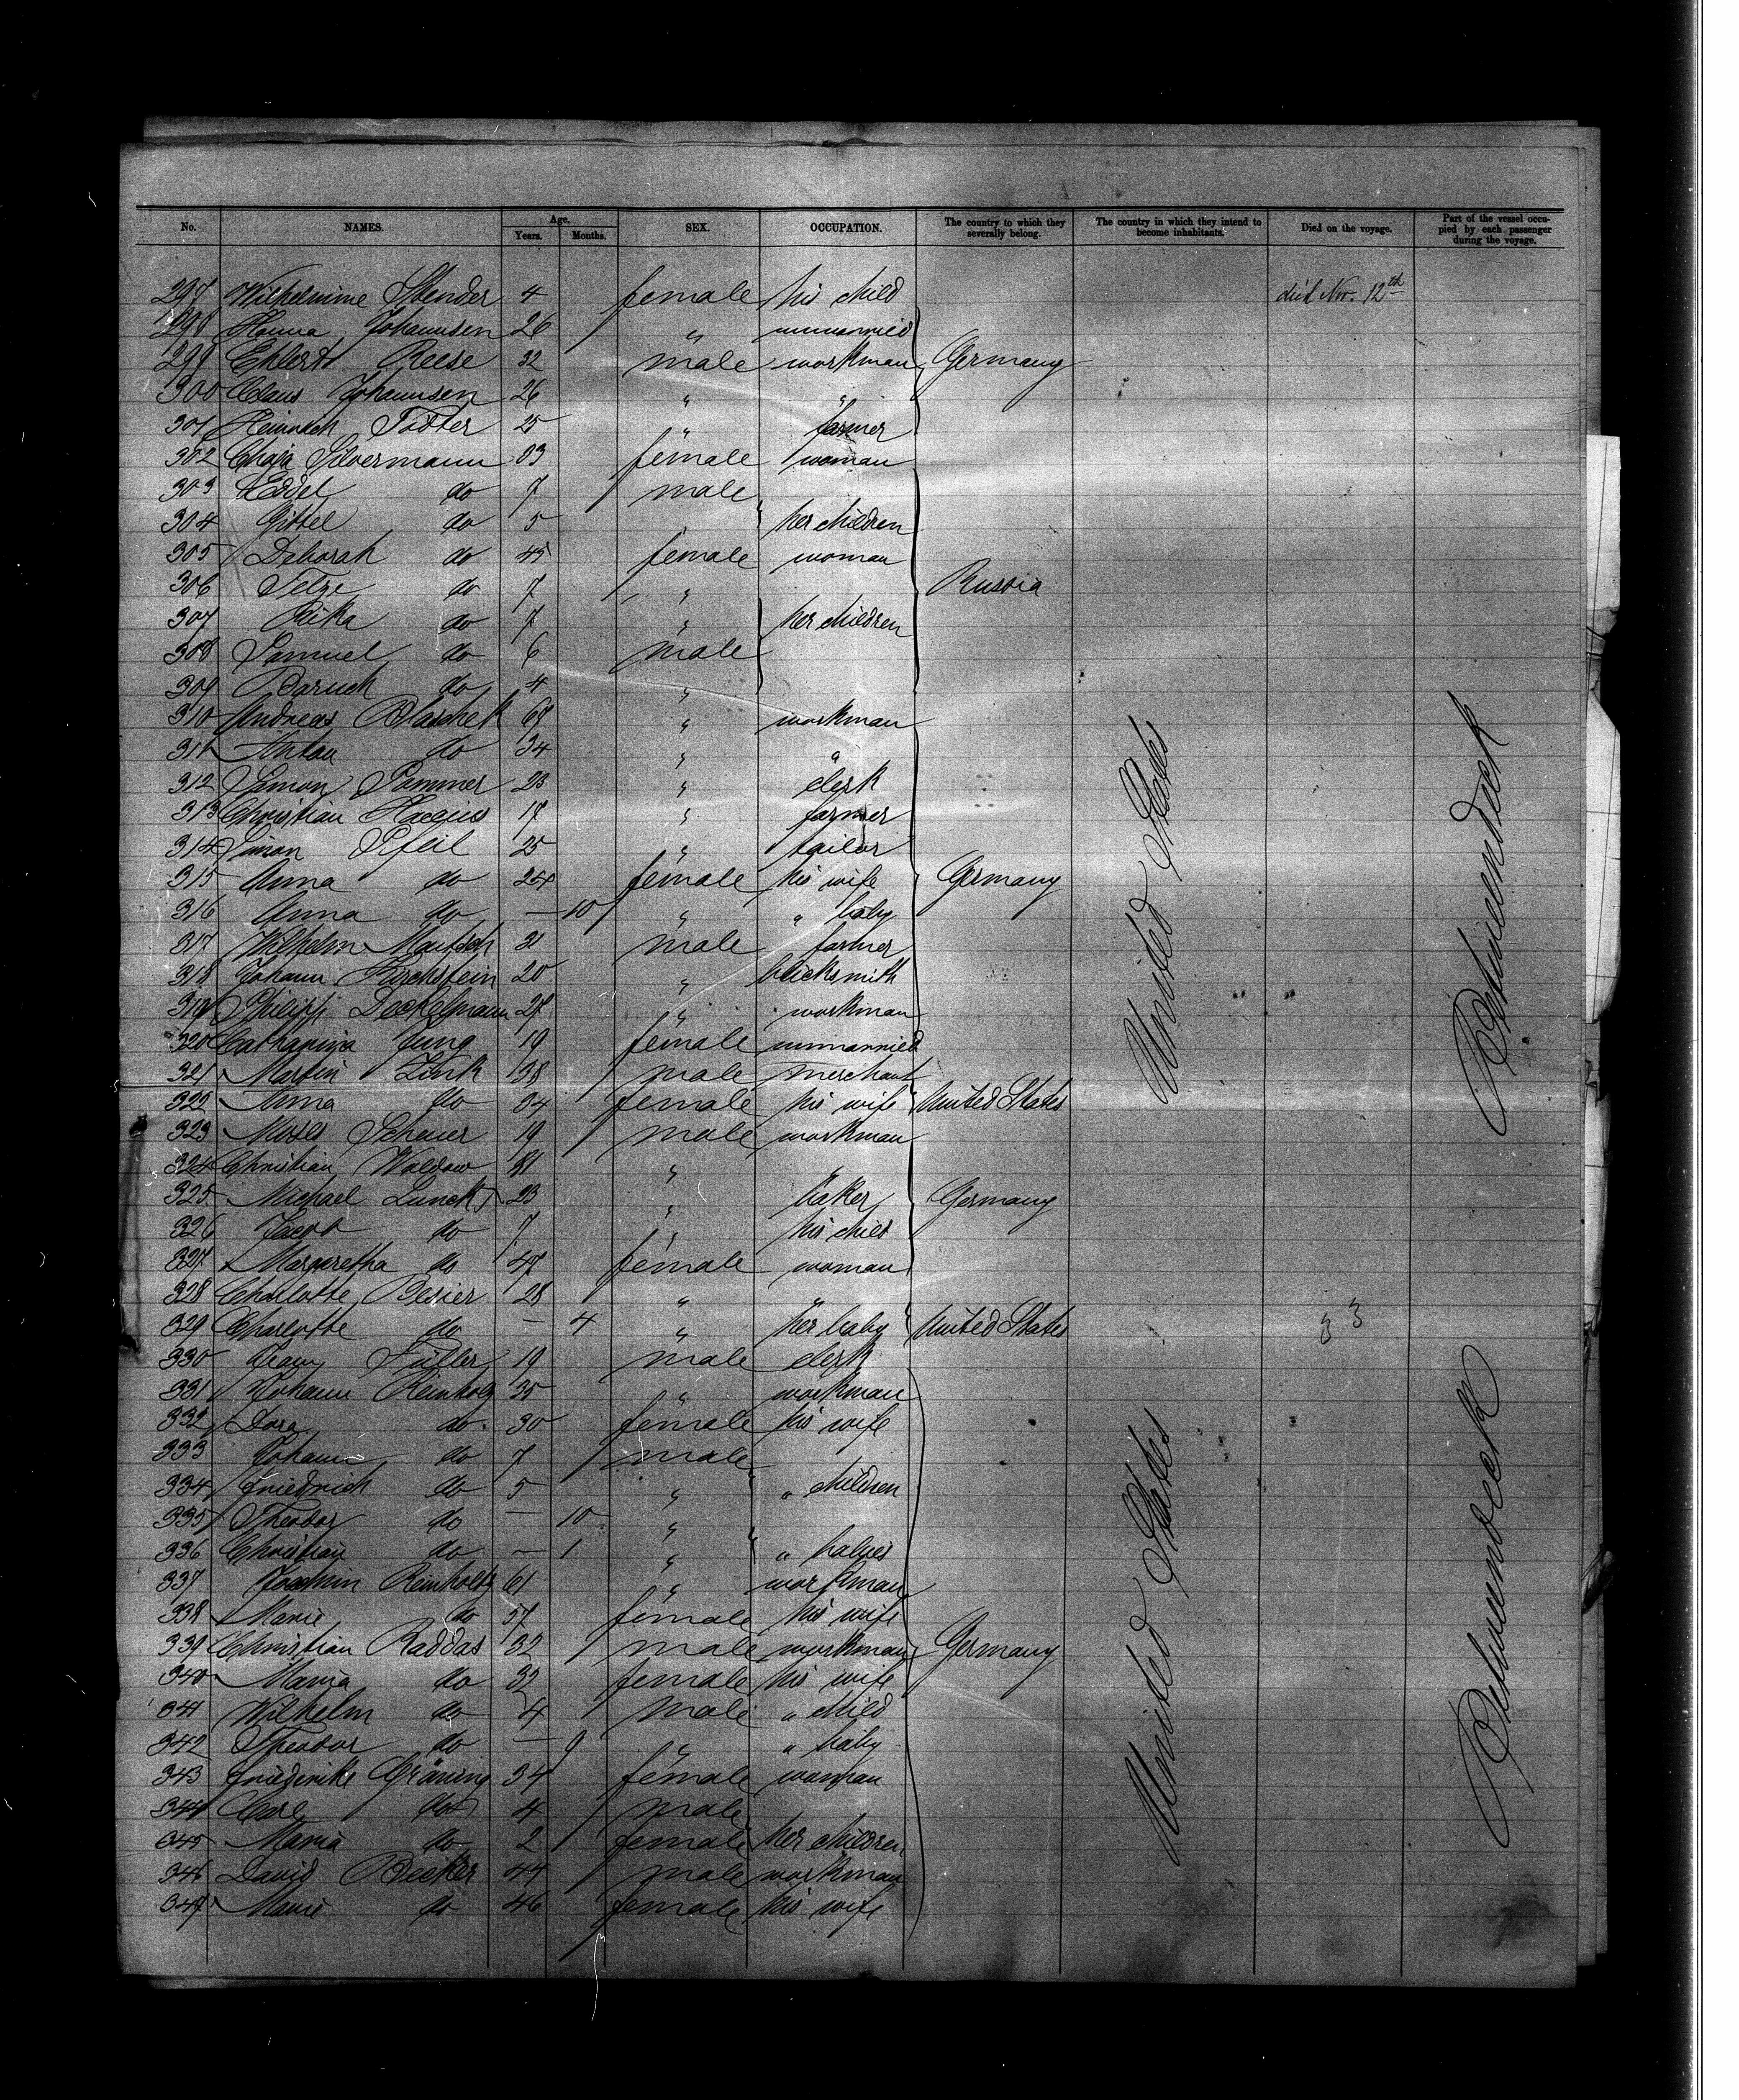 No. NAMES. Age. Years. Months. SEX. OCCUPATION. The country to which they severally belong. The country in which they intend to become inhabitants. Died on the voyage. Part of the vessel occupied by each passenger during the voyage.
297 Wilhelmine Stender 4 female his child died Nov. 12th
298 Hanna Johannsen 26 " unmarried
299 Ehlert Reese 32 male workman Germany
300 Claus Johannsen 26 " "
301 Heinrich Tödter 25 " farmer
302 Chaja Silvermann 33 female woman
303 Eddel do 7 male
304 Gittel do 5 " her children
305 Deborah do 45 female woman
306 do 7 " Russia
307 Rika do 7 " her children
308 Samuel do 6 male
309 Baruch do 4 "
310 Andreas Blaschek 69 " workman
311 Anton do 34 " "
312 Simon Sommer 23 " clerk
313 Christian 17 " farmer
314 Simon Pfeil 25 " tailor
315 Anna do 24 female his wife Germany
316 Anna do — 10 " " baby
317 Wilhelm 21 male farmer
318 Johann Kirchstein 20 " blacksmith
319 Philipp Deckelmann 27 " workman
320 Catharina Jung 19 female unmarried
321 Martin Link 38 male merchant
322 Anna do 34 female his wife United States
323 Moses Scheuer 19 male workman
324 Christian Waldow 31 " "
325 Michael 23 " baker Germany
326 Jacob do 7 " his child
327 Margaretha do 47 female woman
328 Charlotte Besier 28 " "
329 Charlotte do — 4 " her baby United States
330 Füller 19 male clerk
331 Johann Reinholz 35 " workman
332 Dora do. 30 female his wife
333 Johann do 7 male
334 Friedrich do 5 " " children
335 Theodor do — 10 "
336 Christian do — 1 " " babies
337 Joachim Reinholtz 61 " workman
338 Marie do 57 female his wife
339 Christian Raddas 32 male workman Germany
340 Maria do 32 female his wife
341 Wilhelm do 4 male " child
342 Theodor do — 9 " " baby
343 Friederike Gräning 34 female woman
344 Carl do 4 male
345 Maria do 2 female her children
346 David Becker 44 male workman
347 Marie do 46 female his wife
United States
United States
Betweendeck
Betweendeck